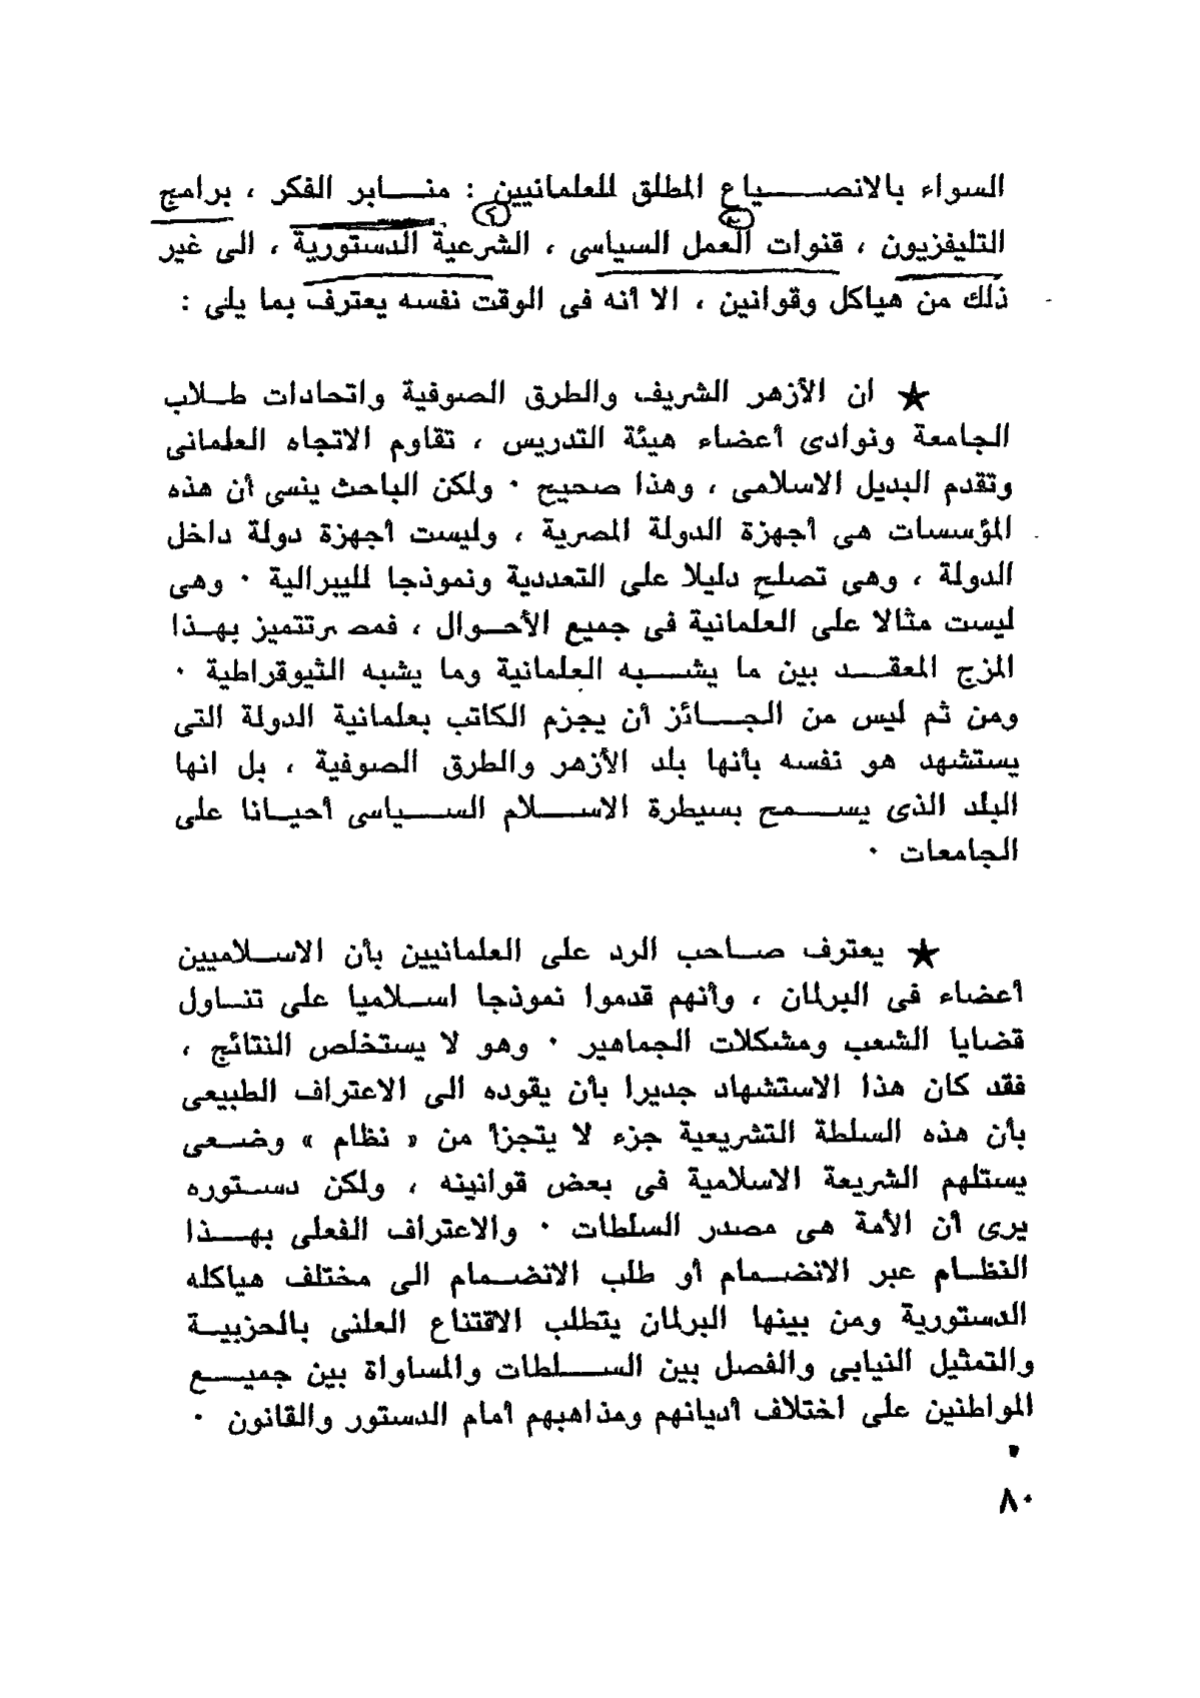 السواء بالانصياع المطلق للعلمانيين : منابر الفكر ، برامج
التليفزيون ، قنوات العمل السياسى ، الشرعية الدستورية ، الى غير
ذلك من هياكل وقوانين ، الا أنه فى الوقت نفسه يعترف بما يلى :
★ ان الأزهر الشريف والطرق الصوفية واتحادات طلاب
الجامعة ونوادى أعضاء هيئة التدريس ، تقاوم الاتجاه العلمانى
وتقدم البديل الاسلامى ، وهذا صحيح · ولكن الباحث ينسى أن هذه
المؤسسات هى أجهزة الدولة المصرية ، وليست أجهزة دولة داخل
الدولة ، وهى تصلح دليلا على التعددية ونموذجا لليبرالية · وهى
ليست مثالا على العلمانية فى جميع الأحوال ، فمصر تتميز بهذا
المزج المعقد بين ما يشبه العلمانية وما يشبه الثيوقراطية ·
ومن ثم ليس من الجائز أن يجزم الكاتب بعلمانية الدولة التى
يستشهد هو نفسه بأنها بلد الأزهر والطرق الصوفية ، بل انها
البلد الذى يسمح بسيطرة الاسلام السياسى أحيانا على
الجامعات ·
★ يعترف صاحب الرد على العلمانيين بأن الاسلاميين
أعضاء فى البرلمان ، وأنهم قدموا نموذجا اسلاميا على تناول
قضايا الشعب ومشكلات الجماهير · وهو لا يستخلص النتائج ،
فقد كان هذا الاستشهاد جديرا بأن يقوده الى الاعتراف الطبيعى
بأن هذه السلطة التشريعية جزء لا يتجزأ من « نظام » وضعى
يستلهم الشريعة الاسلامية فى بعض قوانينه ، ولكن دستوره
يرى أن الأمة هى مصدر السلطات · والاعتراف الفعلى بهذا
النظام عبر الانضمام أو طلب الانضمام الى مختلف هياكله
الدستورية ومن بينها البرلمان يتطلب الاقتناع العلنى بالحزبية
والتمثيل النيابى والفصل بين السلطات والمساواة بين جميع
المواطنين على اختلاف أديانهم ومذاهبهم أمام الدستور والقانون ·
٨٠